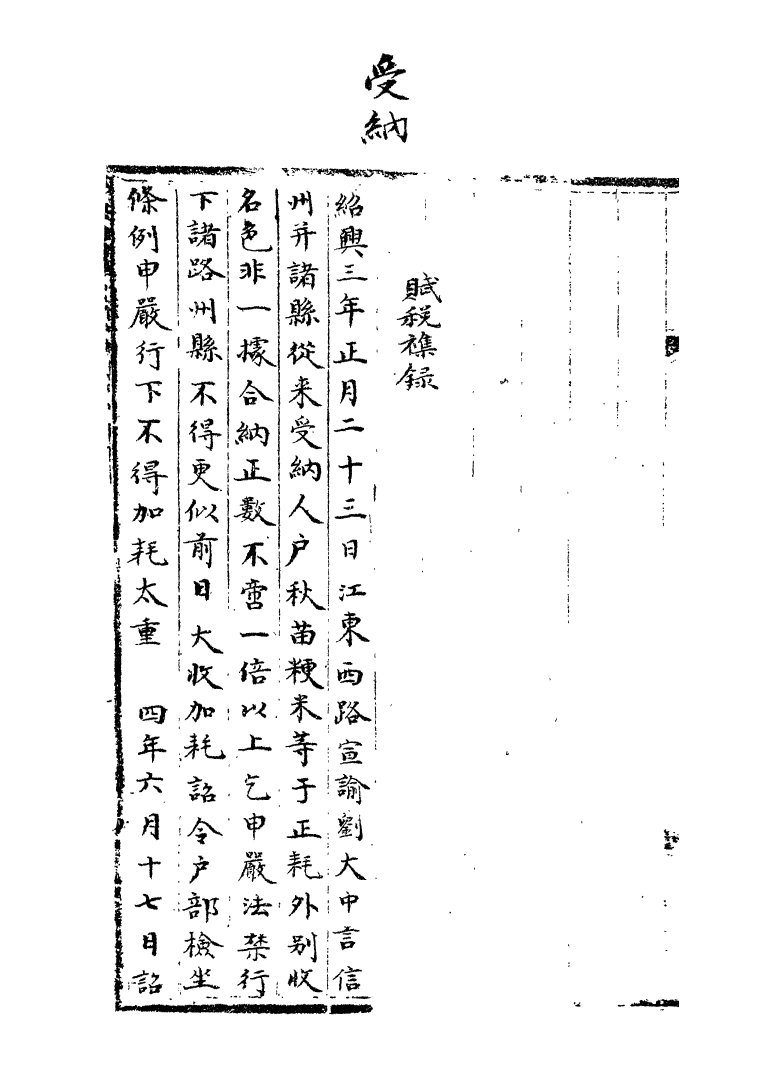 受納
賦稅襍録
紹興三年正月二十三日江東西路宣諭劉大中言信
州并諸縣從来受納人户秋苗粳米等于正耗外别收
名色非一據合納正數不啻一倍以上乞申嚴法禁行
下諸路州縣不得更似前日大收加耗詔令户部檢坐
條例申嚴行下不得加耗太重　四年六月十七日詔